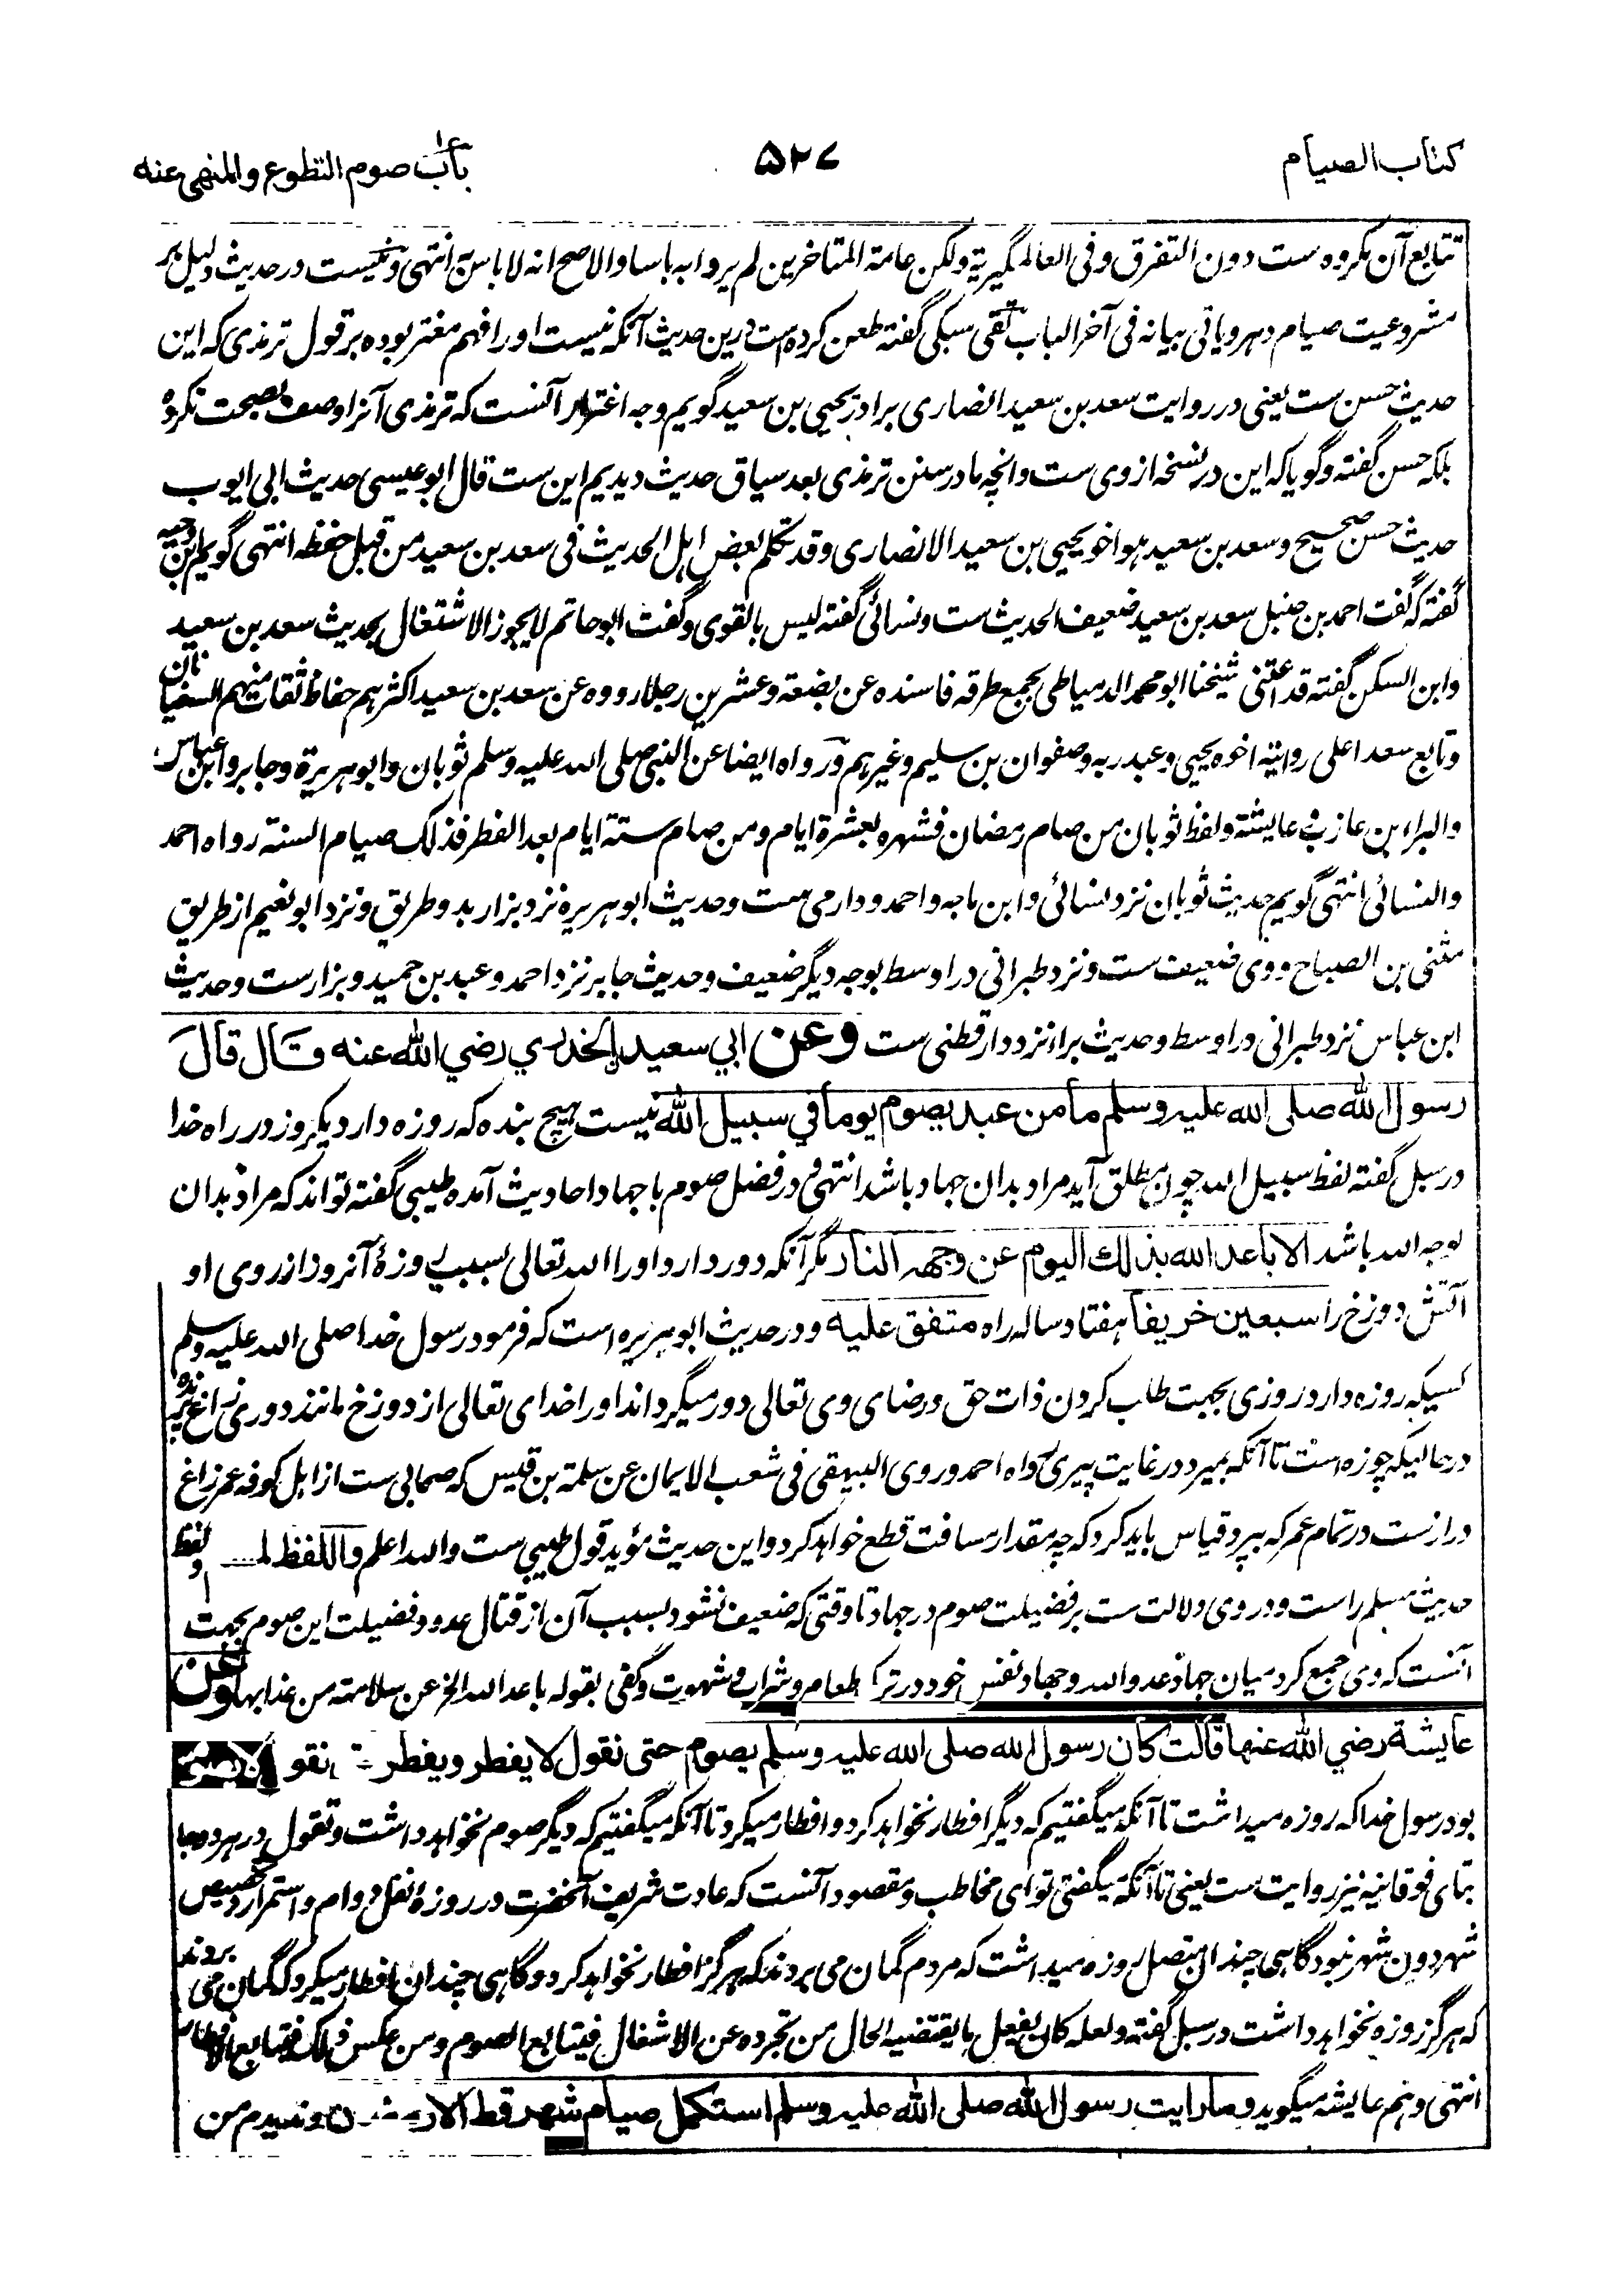 کتاب الصیام
۵۲۷
باب صوم التطوع والمنهی عنه
تتابع آن مکروه ست دون التفرق وفی العالمگیریة ولکن عامة المتاخرین لم یروا به باسا والاصح انه لا باس به انتهی ونیست در حدیث دلیل بر
مشروعیت صیام دهر ویاتی بیانه فی آخر الباب تقی سبکی گفته طعن کرده است درین حدیث آنکه نیست اورا فهم مغتر بوده بر قول ترمذی که این
حدیث حسن ست یعنی در روایت سعد بن سعید انصاری برادر یحیی بن سعید گویم وجه اغترار آنست که ترمذی آنرا وصف بصحت نکرده
بلکه حسن گفته وگویا که این در نسخه از وی ست وانچه ما در سنن ترمذی بعد سیاق حدیث دیدیم این ست قال ابو عیسی حدیث ابی ایوب
حدیث حسن صحیح وسعد بن سعید هو اخو یحیی بن سعید الانصاری وقد تکلم بعض اهل الحدیث فی سعد بن سعید من قبل حفظه انتهی گویم ابن دحیه
گفته که گفت احمد بن حنبل سعد بن سعید ضعیف الحدیث ست ونسائی گفته لیس بالقوی وگفت ابو حاتم لا یجوز الاشتغال بحدیث سعد بن سعید
وابن السکن گفته قد اعتنی شیخنا ابو محمد الدمیاطی بجمع طرقه فاسنده عن بضعة وعشرین رجلا رووه عن سعد بن سعید اکثرهم حفاظ ثقات منهم السفیانان
وتابع سعدا علی روایته اخوه یحیی وعبد ربه وصفوان بن سلیم وغیرهم ورواه ایضا عن النبی صلی الله علیه وسلم ثوبان وابو هریرة وجابر وابن عباس
والبراء بن عازب وعایشة ولفظ ثوبان من صام رمضان فشهره بعشرة ایام ومن صام ستة ایام بعد الفطر فذلک صیام السنة رواه احمد
والنسائی انتهی گویم حدیث ثوبان نزد نسائی وابن ماجه واحمد ودارمی ست وحدیث ابو هریره نزد بزار بدو طریق ونزد ابو نعیم از طریق
مثنی بن الصباح ووی ضعیف ست ونزد طبرانی در اوسط بوجه دیگر ضعیف وحدیث جابر نزد احمد وعبد بن حمید وبزار ست وحدیث
ابن عباس نزد طبرانی در اوسط وحدیث براء نزد دارقطنی ست وعن ابي سعيد الخدري رضي الله عنه قال قال
رسول الله صلى الله عليه وسلم ما من عبد يصوم يوما في سبيل الله نیست هیچ بنده که روزه دارد یکروز در راه خدا
در سبل گفته لفظ سبیل الله چون مطلق آید مراد بدان جهاد باشد انتهی ودر فضل صوم با جهاد احادیث آمده طیبی گفته تواند که مراد بدان
لوجه الله باشد الا باعد الله بذلك اليوم عن وجهه النار مگر آنکه دور دارد اورا الله تعالی بسبب روزهٔ آنروز از روی او
آتش دوزخ را سبعين خريفا هفتاد ساله راه متفق عليه ودر حدیث ابو هریره است که فرمود رسول خدا صلی الله علیه وسلم
کسیکه روزه دارد روزی بجهت طلب کردن ذات حق ورضای وی تعالی دور میگرداند اورا خدای تعالی از دوزخ مانند دوری زاغ پرنده
در حالیکه چوزه است تا آنکه بمیرد در غایت پیری رواه احمد وروی البیهقی فی شعب الایمان عن سلمة بن قیس که صحابی ست از اهل کوفه عمر زاغ
دراز ست در تمام عمر که بپرد قیاس باید کرد که چه مقدار مسافت قطع خواهد کرد واین حدیث مؤید قول طیبی ست والله اعلم واللفظ لـ ولفظ
حدیث مسلم راست ودر وی دلالت ست بر فضیلت صوم در جهاد تا وقتی که ضعیف نشود بسبب آن از قتال عدو وفضیلت این صوم بجهت
آنست که وی جمع کرد میان جهاد عدو الله وجهاد نفس خود در ترک طعام وشراب وشهوت وکنی بقوله باعد الله الخ عن سلامته من عذابها وعن
عايشة رضي الله عنها قالت كان رسول الله صلى الله عليه وسلم يصوم حتى نقول لا يفطر ويفطر نقو
بود رسول خدا که روزه میداشت تا آنکه میگفتیم که دیگر افطار نخواهد کرد وافطار میکرد تا آنکه میگفتیم که دیگر صوم نخواهد داشت وتقول در هر دو جا
بتای فوقانیه نیز روایت ست یعنی تا آنکه میگفتی تو ای مخاطب ومقصود آنست که عادت شریف آنحضرت در روزهٔ نفل دوام واستمرار وتخصیص
شهر دون شهر نبود گاهی چندان متصل روزه میداشت که مردم گمان می بردند که هرگز افطار نخواهد کرد وگاهی چندان افطار میکرد که گمان می بردند
که هرگز روزه نخواهد داشت در سبل گفته ولعله کان یفعل ما یقتضیه الحال من تجرده عن الاشغال فیتابع الصوم ومن عکس ذلک فیتابع الافطار
انتهی وهم عایشه میگوید وما رايت رسول الله صلى الله عليه وسلم استكمل صيام شهر قط الا ر ن وندیدم من